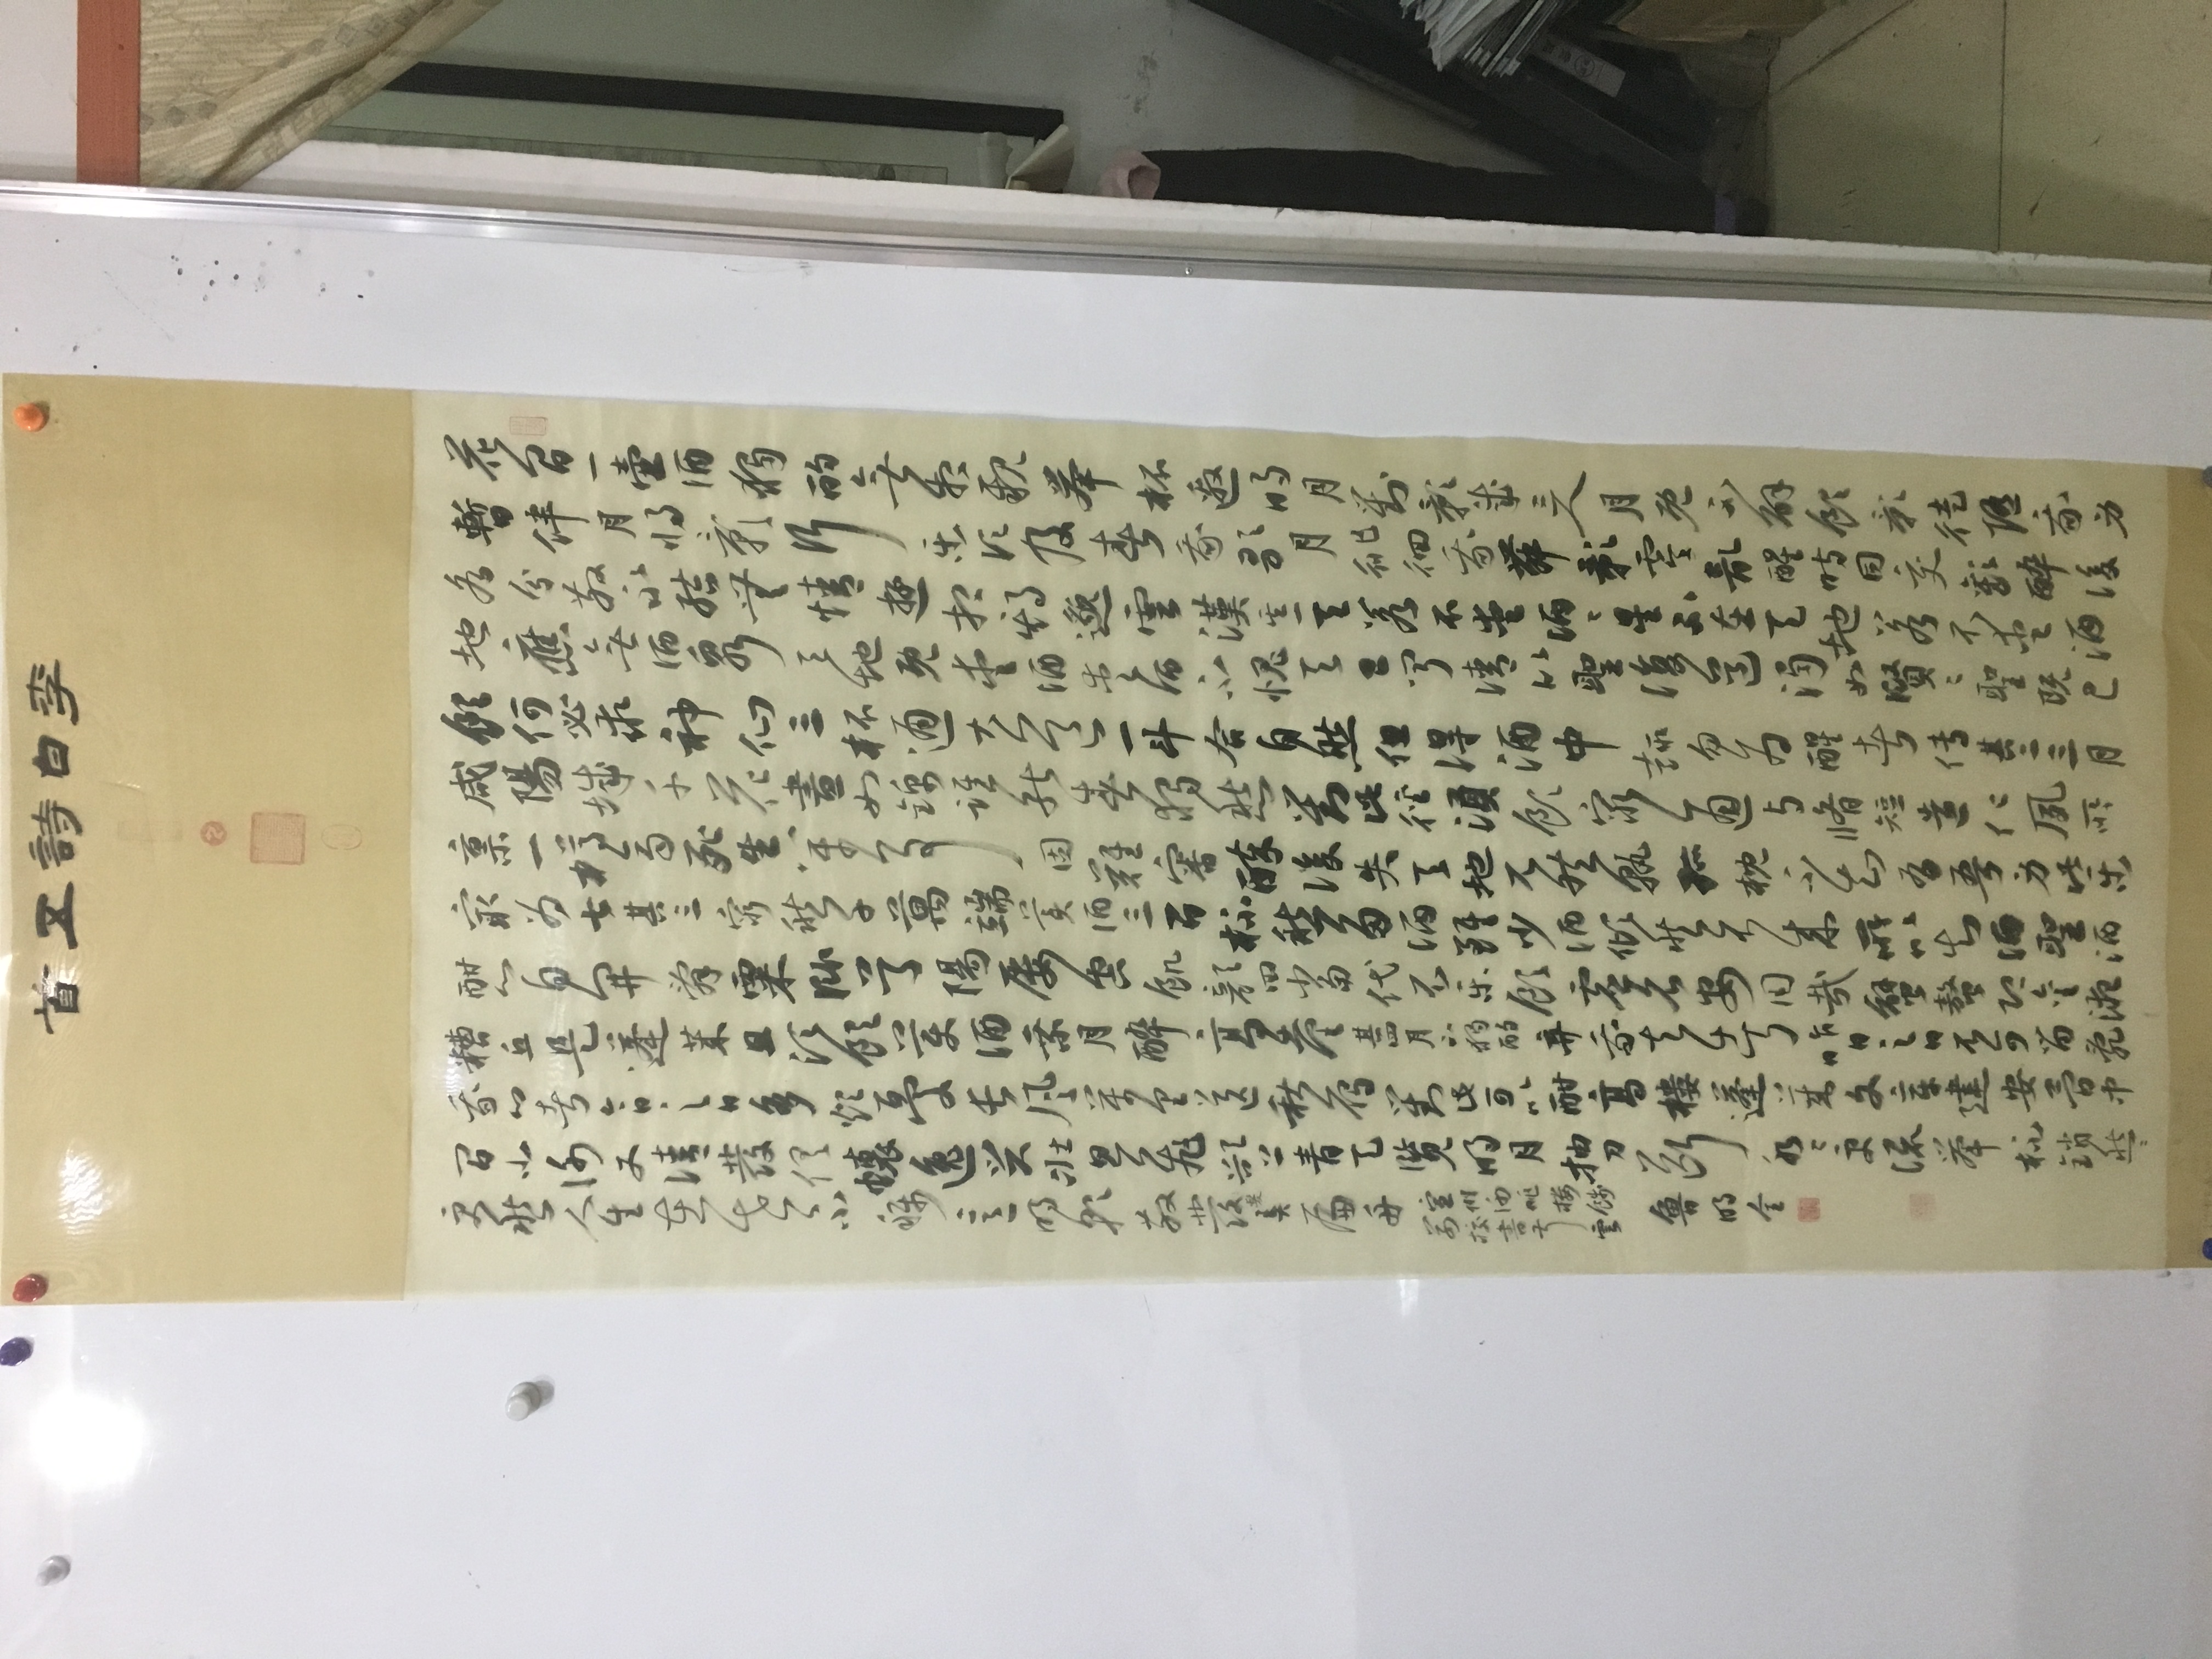 李白詩五首
花間一壺酒獨酌無相親舉杯邀明月對影成三人月既不解飲影徒隨我身
暫伴月將影行樂須及春我歌月徘徊我舞影零亂醒時同交歡醉後
各分散永結無情遊相期邈雲漢其一天若不愛酒酒星不在天地若不愛酒
地應無酒泉天地既愛酒愛酒不愧天已聞清比聖復道濁如賢賢聖既已
飲何必求神仙三杯通大道一斗合自然但得酒中趣勿為醒者傳其二三月
咸陽城千花晝如錦誰能春獨愁對此徑須飲窮通與脩短造化夙所
稟一樽齊死生萬事固難審醉後失天地兀然就孤枕不知有吾身此樂
最為甚其三窮愁千萬端美酒三百杯愁多酒雖少酒傾愁不來所以知酒聖酒
酣心自開辭粟臥首陽屢空飢顏回當代不樂飲虛名安用哉蟹螯即金液
糟丘是蓬萊且須飲美酒乘月醉高臺其四月下獨酌棄我去者昨日之日不可留亂
我心者今日之日多煩憂長風萬里送秋雁對此可以酣高樓蓬萊文章建安骨中
間小謝又清發俱懷逸興壯思飛欲上青天覽明月抽刀斷水水更流舉杯銷愁愁
更愁人生在世不稱意明朝散髮弄扁舟
宣州謝朓樓餞
別校書叔雲
魯明全